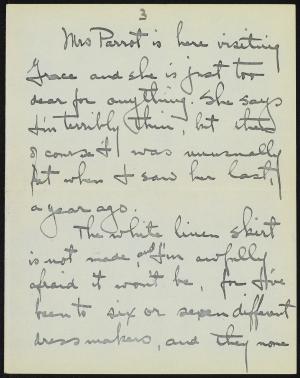 3
Mrs Parrot is here visiting
Grace and she is just too
dear for anything. She says
I'm terribly thin, but then
of course I was unusually
fat when I saw her last,
a year ago.
The white linen skirt
is not made, and I'm awfully
afraid it won't be, for I've
been to six or seven different
dressmakers, and they none